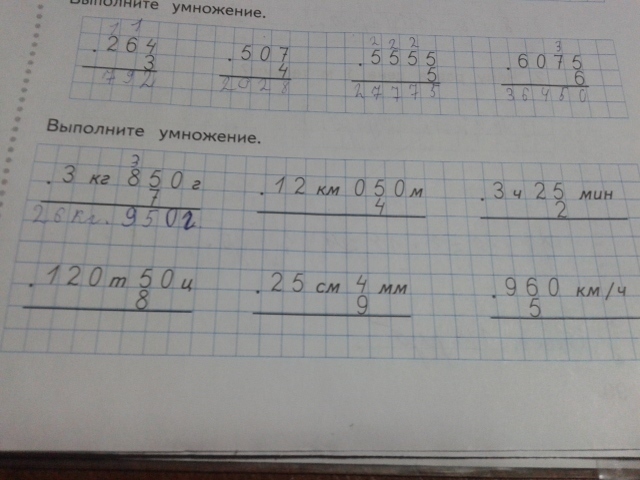 Выполните умножение.
1 1 2 2 2 3
.264 .507 .5555 .6075
3 4 5 6
792 2928 27775 36450
Выполните умножение.
3
.3 кг 850 г .12 км 050 м .3 ч 25 мин
7 4 2
26 кг. 950 г
.120 т 50 ц .25 см 4 мм .960 км/ч
8 9 5